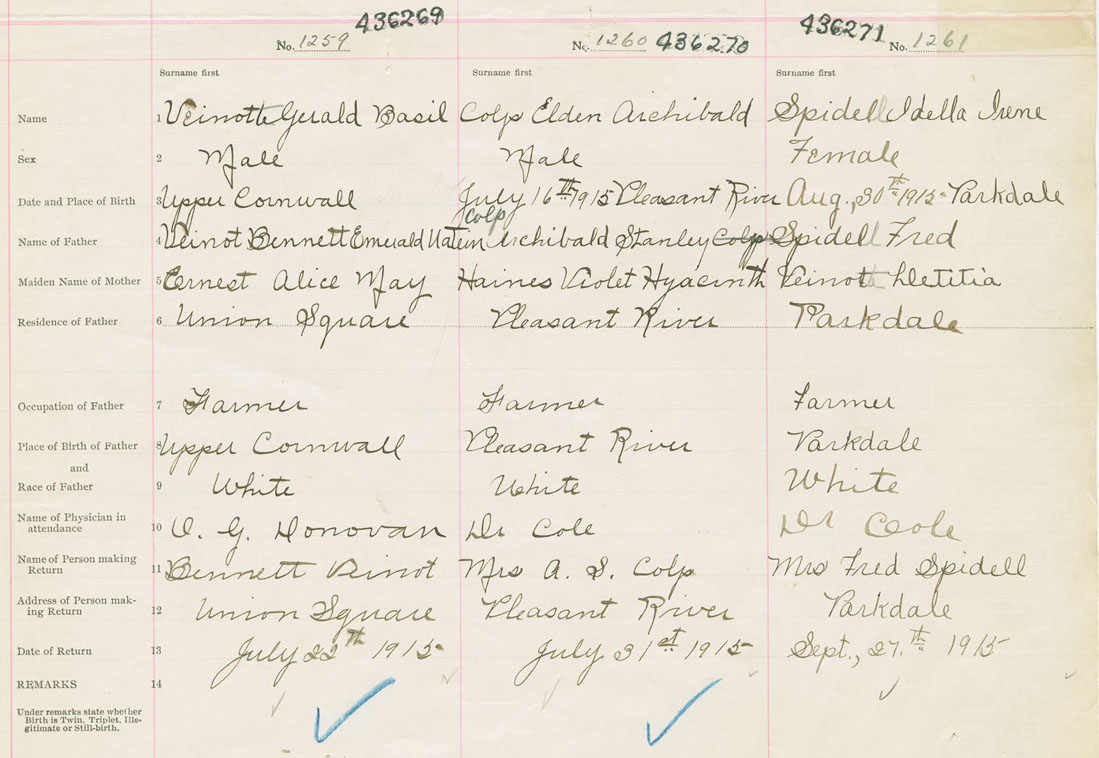 436269 436271
No. 1259 No. 1260 436270 No. 1261
Surname first Surname first Surname first
Name 1 Veinotte Gerald Basil Colp Elden Archibald Spidell Idella Irene
Sex 2 Male Male Female
Date and Place of Birth 3 Upper Cornwall July 16th 1915 Pleasant River Aug., 30th 1915 Parkdale
Colp
Name of Father 4 Veinot Bennett Emerald Archibald Stanley Colp Spidell Fred
Maiden Name of Mother 5 Ernest Alice May Haines Violet Hyacinth Veinott Letitia
Residence of Father 6 Union Square Pleasant River Parkdale
Occupation of Father 7 Farmer Farmer Farmer
Place of Birth of Father 8 Upper Cornwall Pleasant River Parkdale
and
Race of Father 9 White White White
Name of Physician in
attendance 10 O. G. Donovan Dr Cole Dr Cole
Name of Person making
Return 11 Bennett Vinot Mrs A. S. Colp Mrs Fred Spidell
Address of Person mak-
ing Return 12 Union Square Pleasant River Parkdale
Date of Return 13 July 22th 1915 July 31st 1915 Sept., 27.th 1915
REMARKS 14
Under remarks state whether
Birth is Twin, Triplet, Ille-
gitimate or Still-birth.